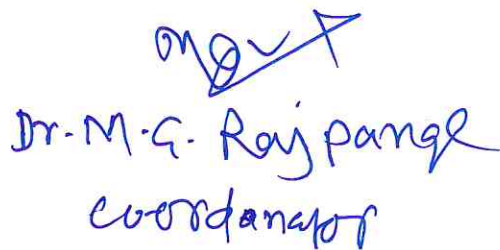 Dr. M. G. Rajpange
coordanator